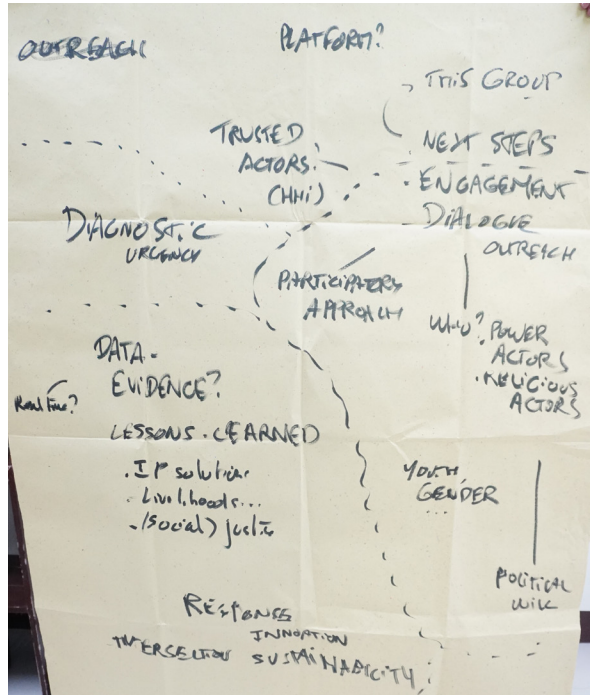 OUTREACH
PLATFORM?
THIS GROUP
NEXT STEPS
• ENGAGEMENT
DIALOGUE
OUTREACH
TRUSTED
ACTORS.
(HHi)
DIAGNOSTIC
URGENCY
PARTICIPATORY
APPROACH
WHO? POWER
ACTORS
• RELIGIOUS
ACTORS
DATA -
EVIDENCE?
Real Time?
LESSONS . LEARNED
. IP solutions
- Livelihoods...
. (social) justice
YOUTH
GENDER
...
POLITICAL
WILL
RESPONSE
INNOVATION
INTERSECTION SUSTAINABILITY